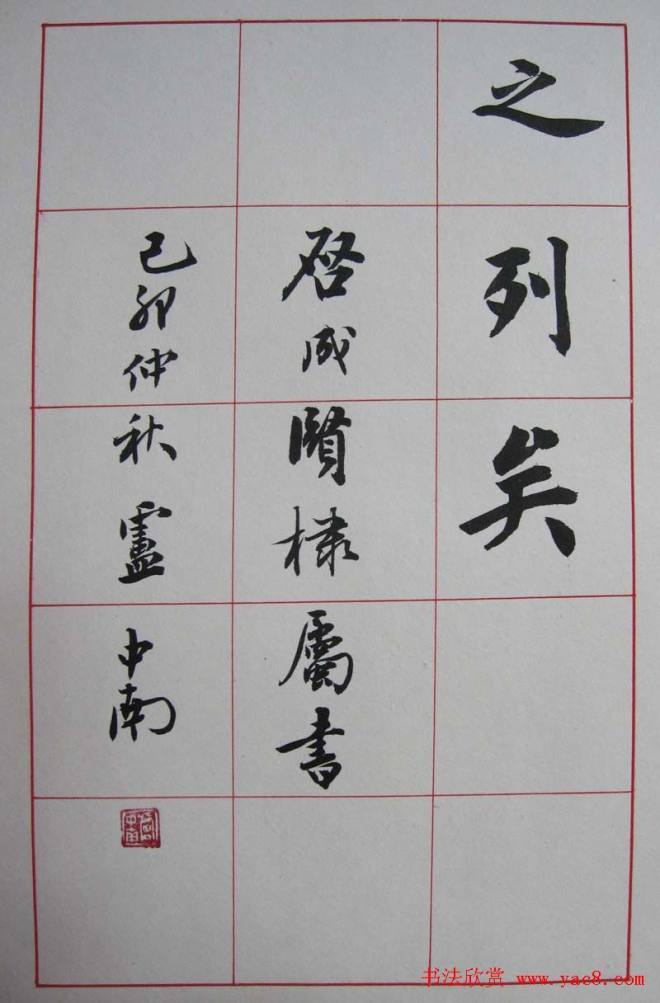 之列矣
启成賢棣屬書
己卯仲秋盧中南
书法欣赏 www.yac8.com